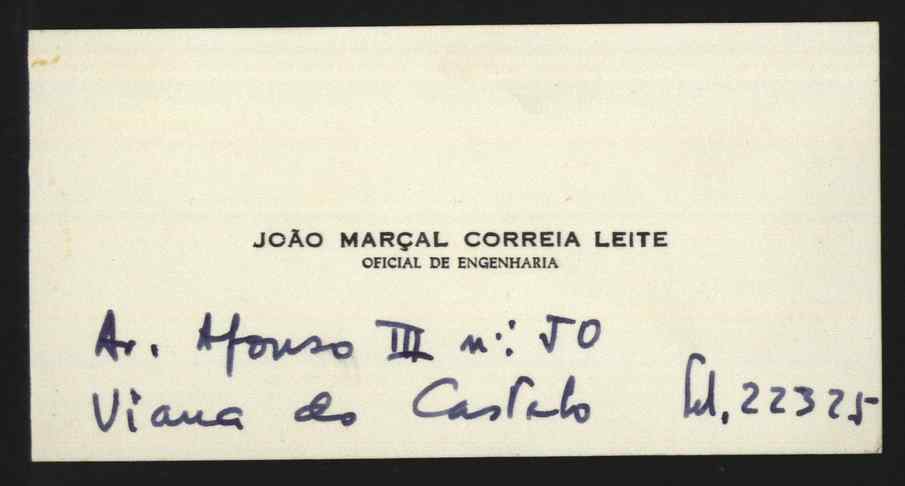 JOÃO MARÇAL CORREIA LEITE
OFICIAL DE ENGENHARIA
Av. Afonso III nº: 50
Viana do Castelo Tel. 22325